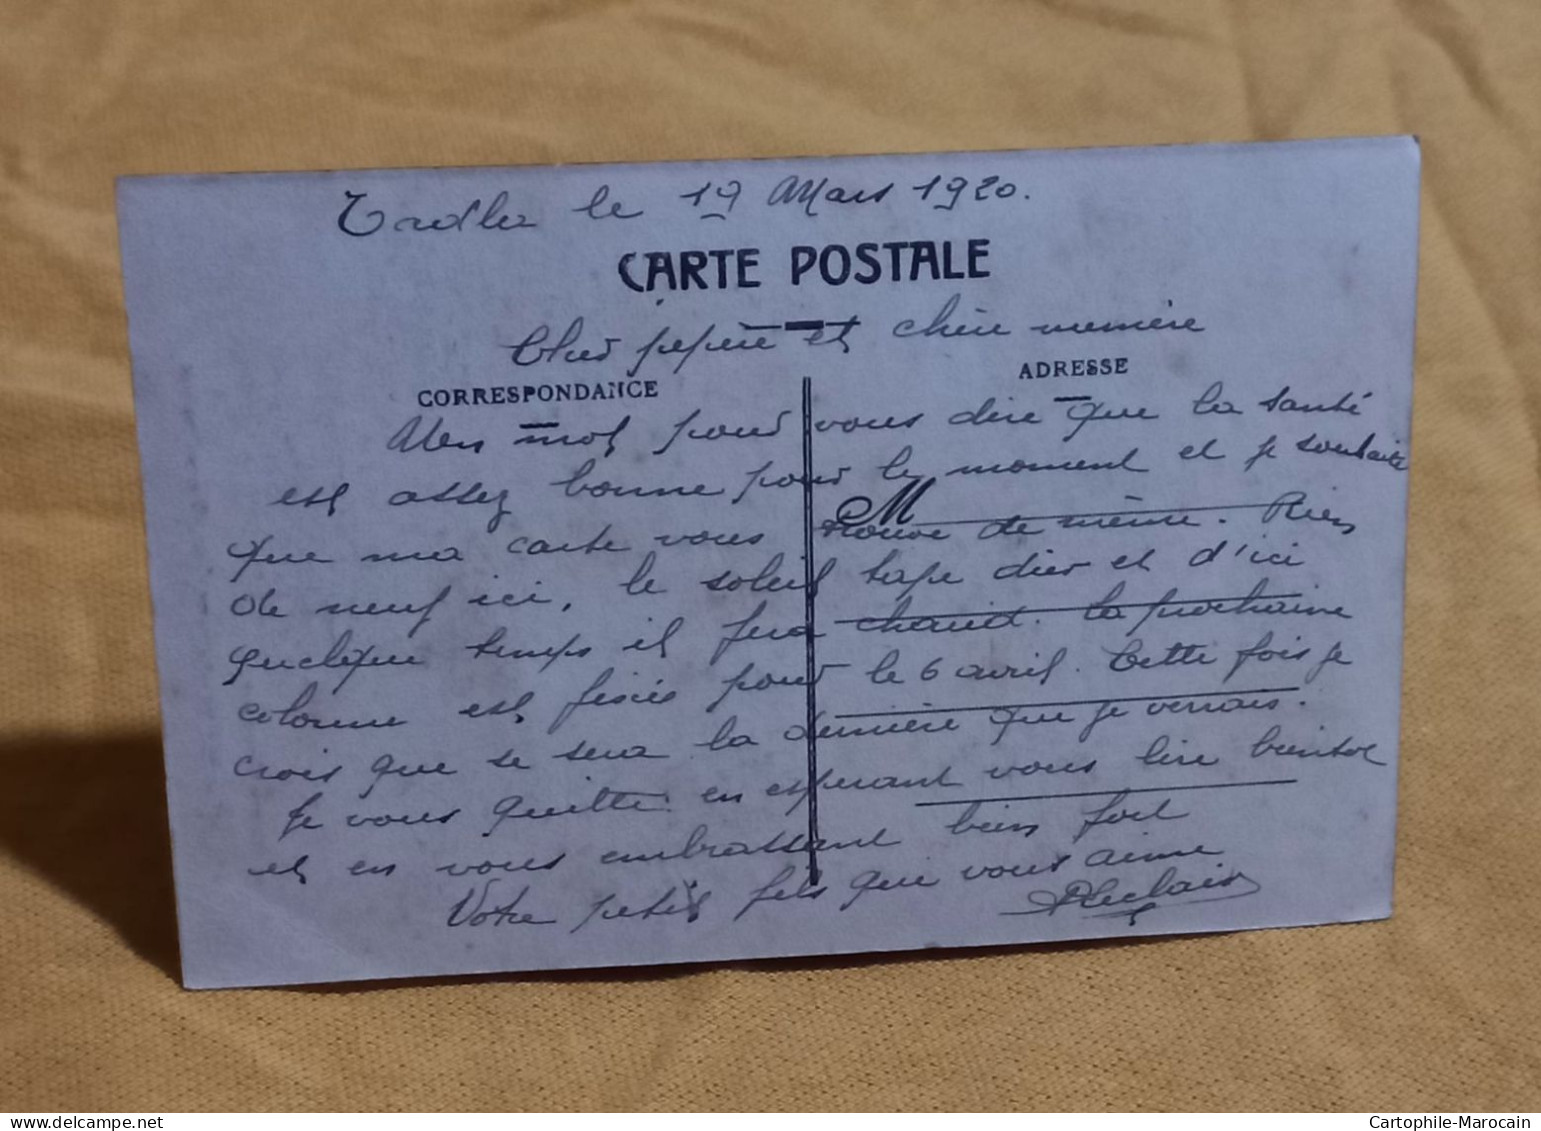 Tadla le 19 Mars 1920.
CARTE POSTALE
Cher pepère et chère memère
CORRESPONDANCE
ADRESSE
Un mot pour vous dire que la santé
est assez bonne pour le moment et je souhaite
M
que ma carte vous trouve de même. Rien
de neuf ici, le soleil tape dier et d'ici
quelque temps il fera chaud. La prochaine
colonne est fixée pour le 6 avril. Cette fois je
crois que se sera la dernière que je verrais.
Je vous quitte en esperant vous lire bientot
et en vous embrassant bien fort
Votre petit fils qui vous aime
delcampe.net
Cartophile-Marocain